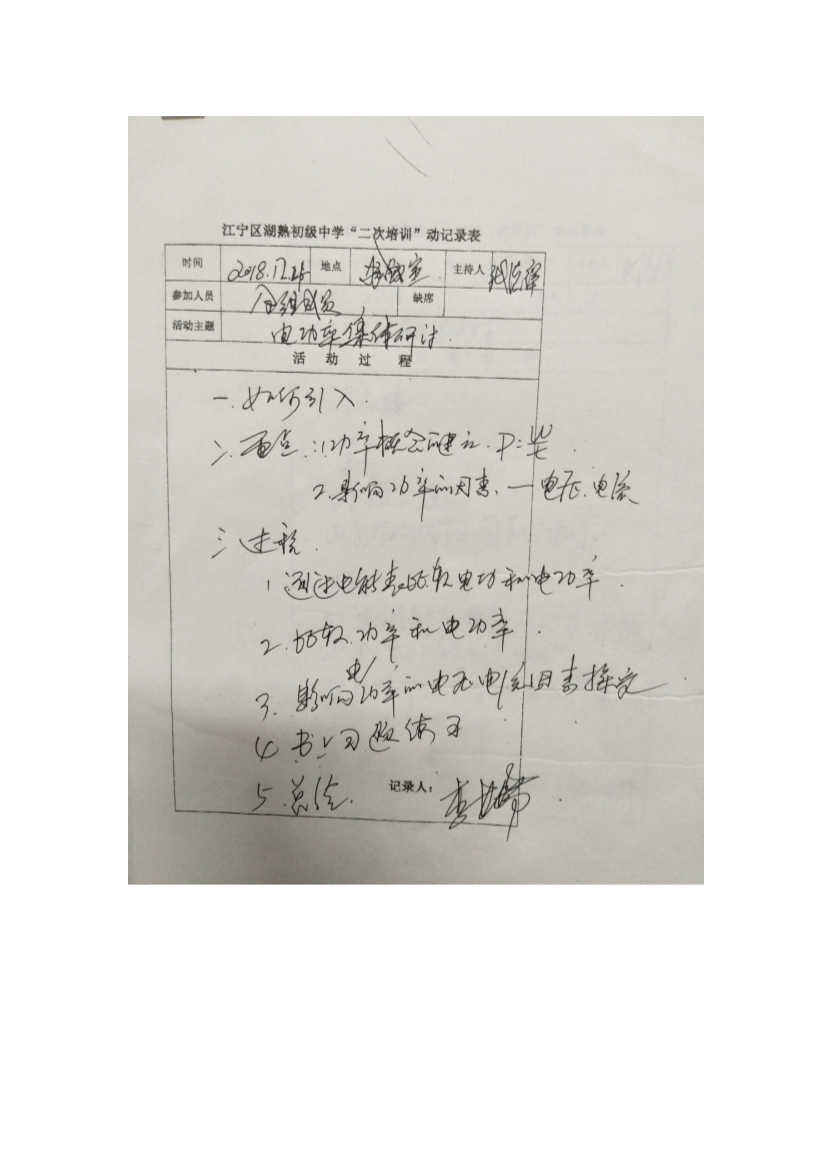 江宁区湖熟初级中学“二次培训”动记录表
时间 2018.12.25 地点 实验室 主持人
参加人员 全组成员 缺席
活动主题 电功率集体研讨.
活动过程
一.如何引入.
二.重点:1.功率概念的建立.P=W/t.
2.影响功率的因素.—电压.电流
三.过程.
1.通过电能表比较电功和电功率.
2.比较.功率和电功率.
3.影响电功率的电压电流因素探究
4 书上习题练习
5.总结. 记录人: